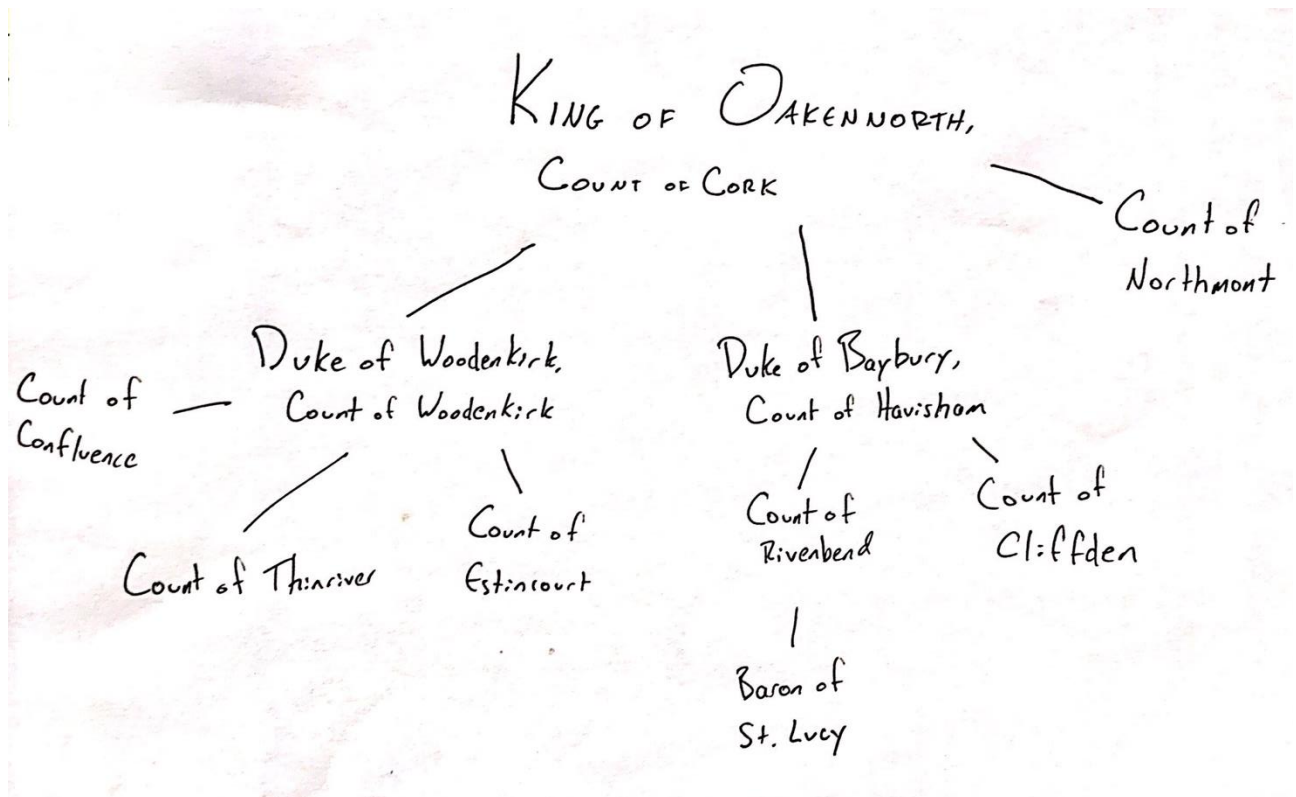 KING OF OAKENNORTH,
COUNT OF CORK
Count of
Northmont
Duke of Woodenkirk,
Count of Woodenkirk
Duke of Baybury,
Count of Havisham
Count of
Confluence
Count of Thinriver
Count of
Estincourt
Count of
Rivenbend
Count of
Cliffden
Baron of
St. Lucy